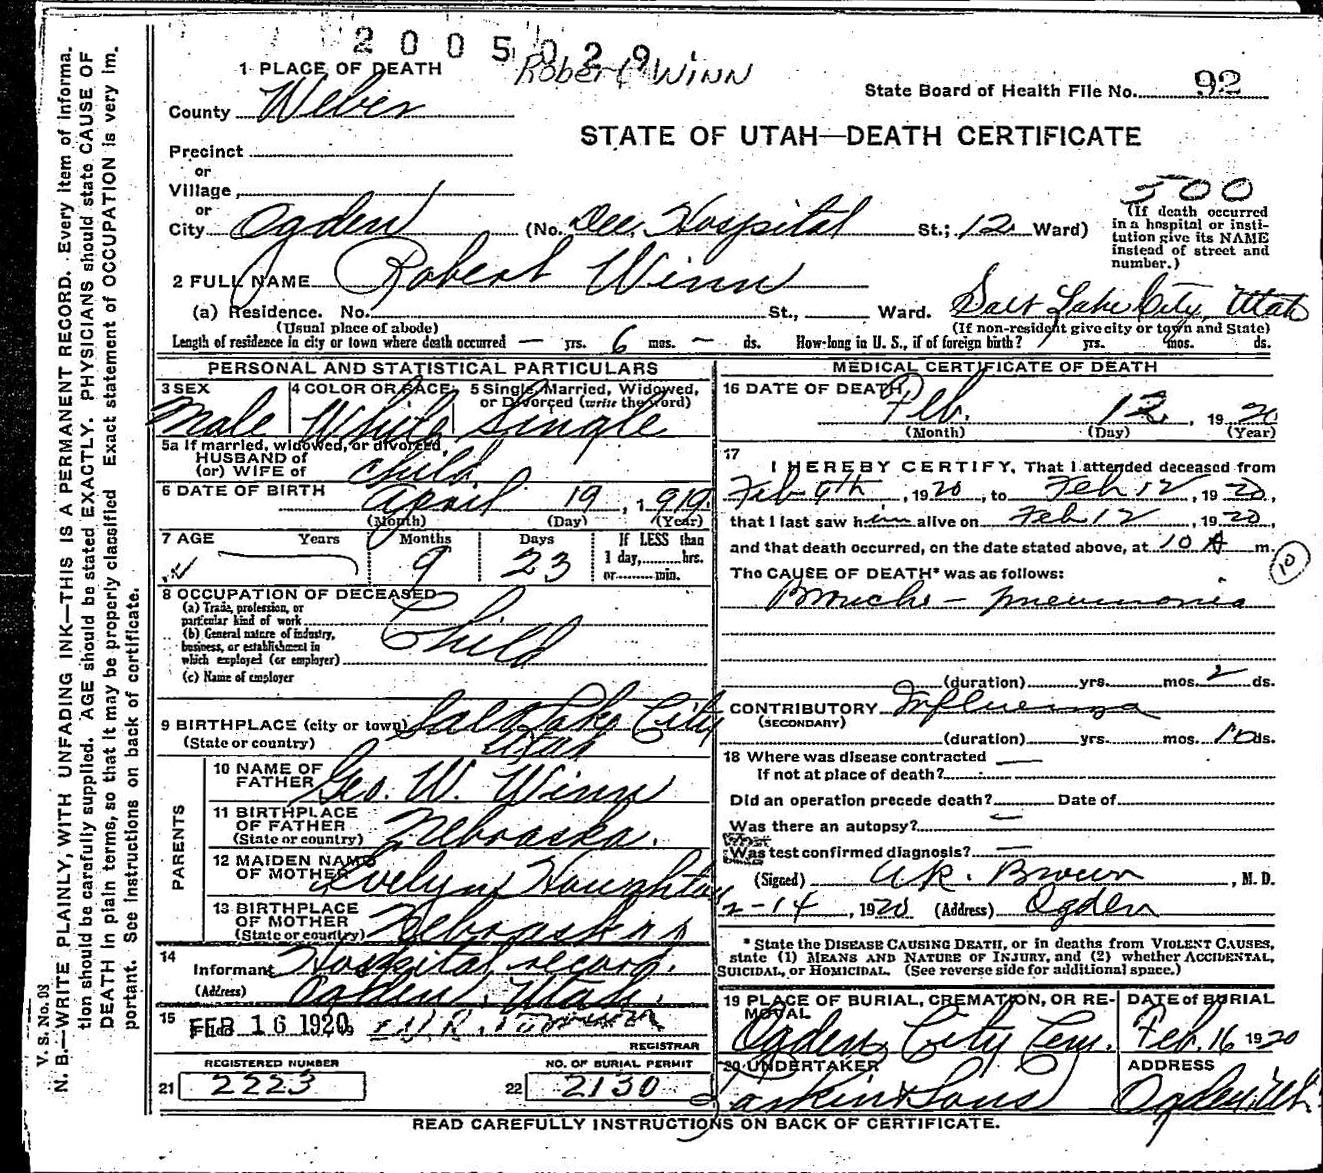 2005029
Robert Winn
1 PLACE OF DEATH
State Board of Health File No. 92
County Weber
STATE OF UTAH—DEATH CERTIFICATE
Precinct
or
Village
500
or
City Ogden (No. Dee Hospital St.; 12 Ward)
(If death occurred in a hospital or insti-
tution give its NAME instead of street and number.)
2 FULL NAME Robert Winn
(a) Residence. No. St., Ward. Salt Lake City, Utah
(Usual place of abode) (If non-resident give city or town and State)
Length of residence in city or town where death occurred — yrs. 6 mos. — ds. How long in U. S., if of foreign birth? yrs. mos. ds.
PERSONAL AND STATISTICAL PARTICULARS
3 SEX 4 COLOR OR RACE 5 Single, Married, Widowed,
or Divorced (write the word)
Male White Single
5a If married, widowed, or divorced
HUSBAND of
(or) WIFE of Child
6 DATE OF BIRTH April 19, 1919
(Month) (Day) (Year)
7 AGE Years Months Days If LESS than
1 day,......hrs.
or......min.
9 23
8 OCCUPATION OF DECEASED
(a) Trade, profession, or
particular kind of work
Child
(b) General nature of industry,
business, or establishment in
which employed (or employer)
(c) Name of employer
9 BIRTHPLACE (city or town) Salt Lake City
(State or country) Utah
PARENTS
10 NAME OF
FATHER Geo. W. Winn
11 BIRTHPLACE
OF FATHER
(State or country) Nebraska.
12 MAIDEN NAME
OF MOTHER Evelyn Houghton
13 BIRTHPLACE
OF MOTHER
(State or country) Nebraska
14
Informant Hospital record.
(Address) Ogden, Utah.
15
Filed FEB 16 1920
REGISTRAR
REGISTERED NUMBER NO. OF BURIAL PERMIT
21 2223 22 2130
MEDICAL CERTIFICATE OF DEATH
16 DATE OF DEATH Feb. 12, 1920
(Month) (Day) (Year)
17
I HEREBY CERTIFY, That I attended deceased from
Feb 9th, 1920, to Feb 12, 1920,
that I last saw him alive on Feb 12, 1920,
and that death occurred, on the date stated above, at 10 A m.
10
The CAUSE OF DEATH* was as follows:
Broncho - pneumonia
(duration) yrs. mos. 2 ds.
CONTRIBUTORY Influenza
(SECONDARY)
(duration) yrs. mos. 10 ds.
18 Where was disease contracted —
If not at place of death?
Did an operation precede death? Date of
Was there an autopsy? —
What
Was test confirmed diagnosis? —
(Signed) Brown, M. D.
2-14, 1920 (Address) Ogden
* State the DISEASE CAUSING DEATH, or in deaths from VIOLENT CAUSES,
state (1) MEANS AND NATURE OF INJURY, and (2) whether ACCIDENTAL,
SUICIDAL, or HOMICIDAL. (See reverse side for additional space.)
19 PLACE OF BURIAL, CREMATION, OR RE-
MOVAL
DATE of BURIAL
Ogden City Cem. Feb. 16 1920
20 UNDERTAKER ADDRESS
Larkin & Sons Ogden, Ut.
READ CAREFULLY INSTRUCTIONS ON BACK OF CERTIFICATE.
V. S. No. 98
N. B.—WRITE PLAINLY, WITH UNFADING INK—THIS IS A PERMANENT RECORD. Every item of informa-
tion should be carefully supplied. AGE should be stated EXACTLY. PHYSICIANS should state CAUSE OF
DEATH in plain terms, so that it may be properly classified Exact statement of OCCUPATION is very im-
portant. See instructions on back of certificate.